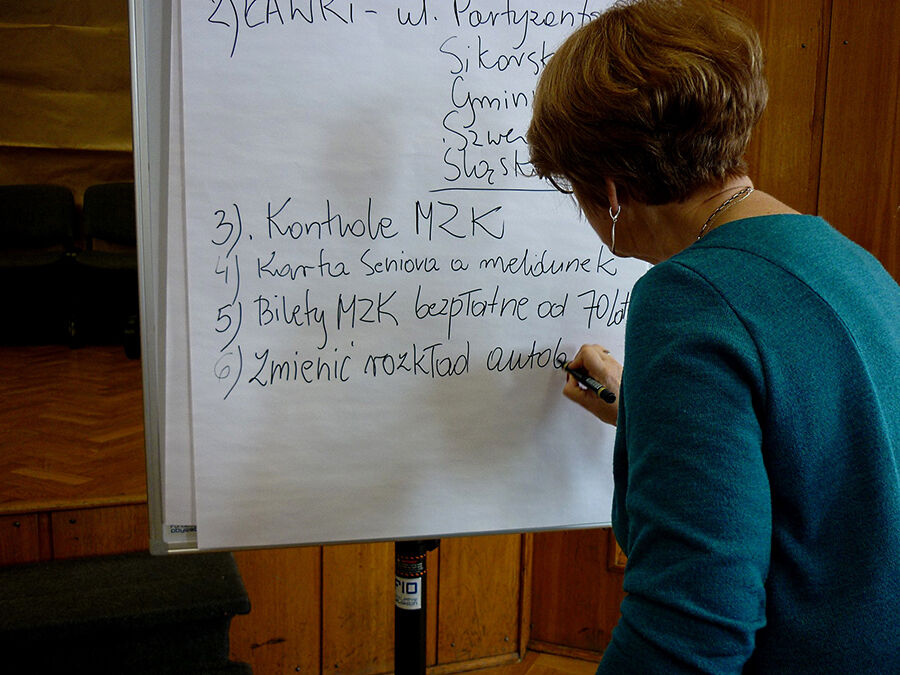 2) ŁAWKI - ul. Partyzantó
Sikorsk
Gmin
Szwe
Śląsk
3). Kontrole MZK
4) Karta Seniora a meldunek
5) Bilety MZK bezpłatne od 70 lat
6) Zmienić rozkład autob
PIO